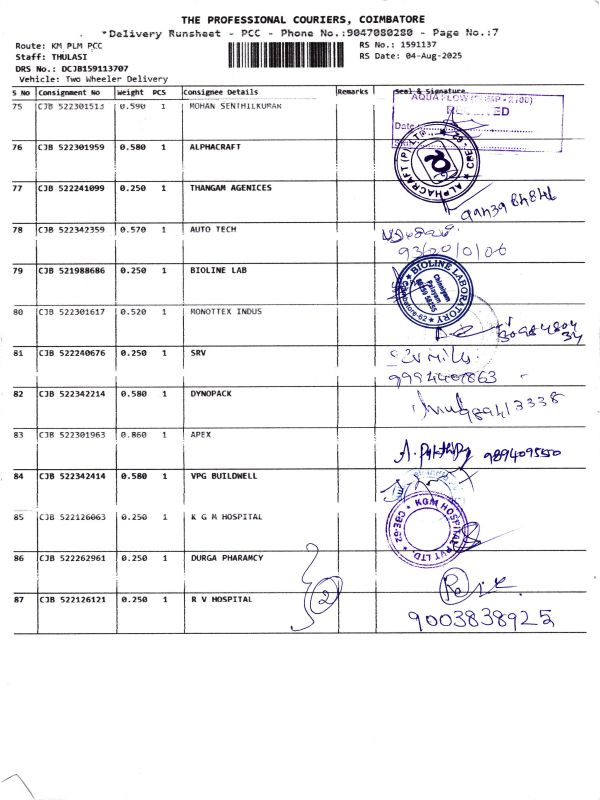 THE PROFESSIONAL COURIERS, COIMBATORE
*Delivery Runsheet - PCC - Phone No.:9047080280 - Page No.:7
Route: KM PLM PCC
RS No.: 1591137
Staff: THULASI
RS Date: 04-Aug-2025
DRS No.: DCJB159113707
Vehicle: Two Wheeler Delivery
S No Consignment No Weight PCS Consignee Details Remarks Seal & Signature
75 CJB 522301513 0.590 1 MOHAN SENTHILKUMAR
AQUA FLOW
Date
76 CJB 522301959 0.580 1 ALPHACRAFT
ALPHACRAFT (P) LTD
77 CJB 522241099 0.250 1 THANGAM AGENICES
78 CJB 522342359 0.570 1 AUTO TECH
79 CJB 521988686 0.250 1 BIOLINE LAB
BIOLINE LABORATORY
80 CJB 522301617 0.520 1 MONOTTEX INDUS
81 CJB 522240676 0.250 1 SRV
82 CJB 522342214 0.580 1 DYNOPACK
9894113338
83 CJB 522301963 0.860 1 APEX
84 CJB 522342414 0.580 1 VPG BUILDWELL
85 CJB 522126063 0.250 1 K G M HOSPITAL
KGM HOSPITAL PVT LTD. CBE-62
86 CJB 522262961 0.250 1 DURGA PHARAMCY
2
87 CJB 522126121 0.250 1 R V HOSPITAL
9003838925